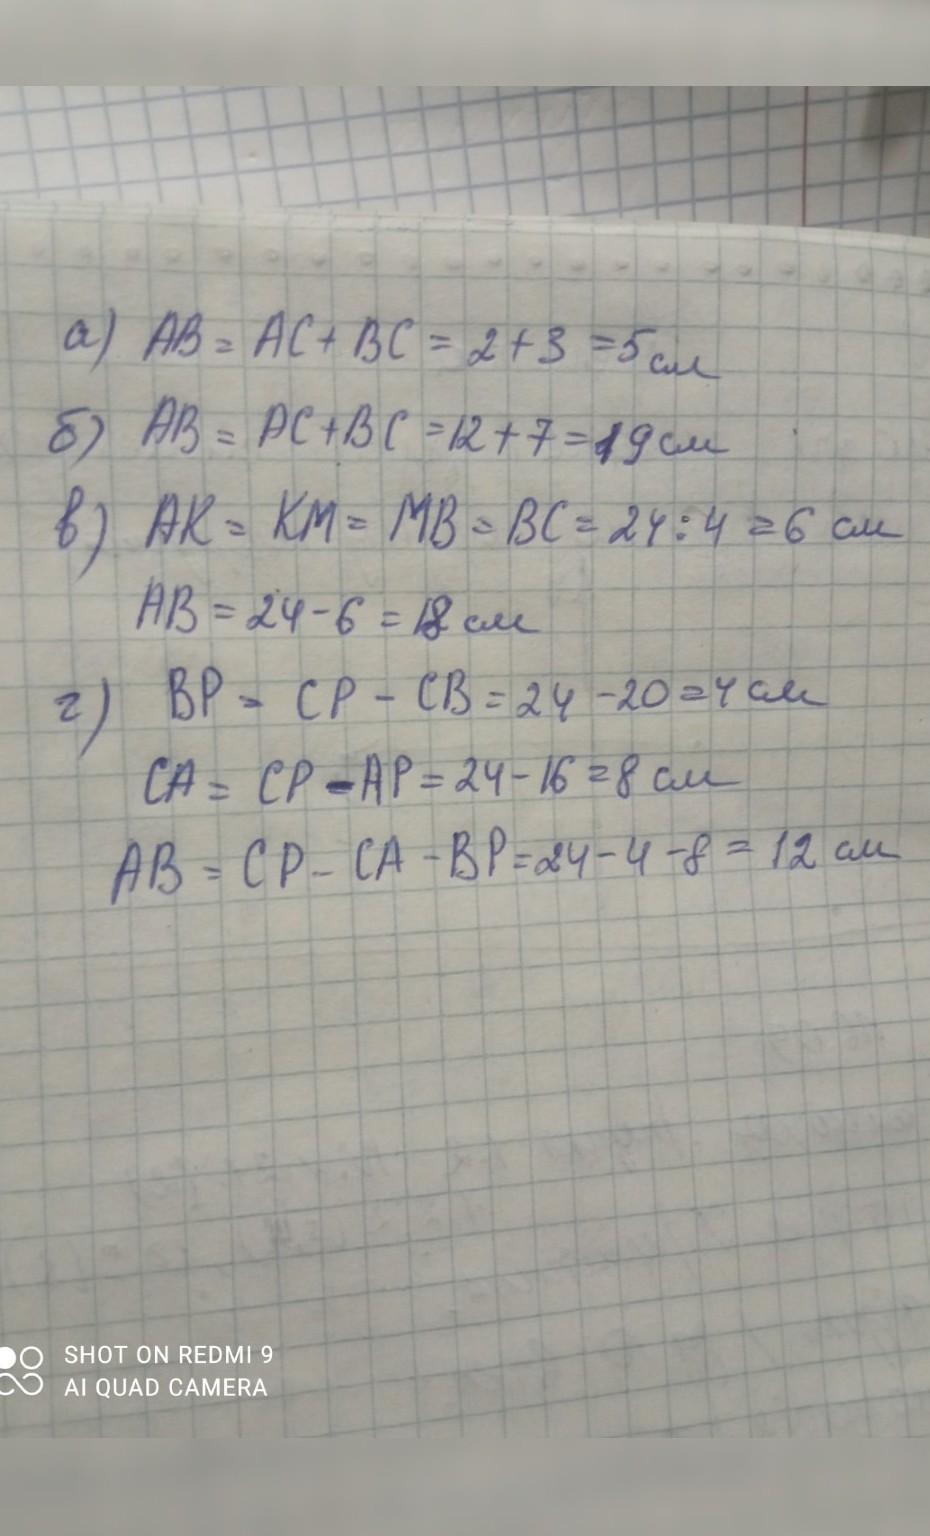 а) AB = AC + BC = 2 + 3 = 5 см
б) AB = AC + BC = 12 + 7 = 19 см
в) AK = KM = MB = BC = 24 : 4 = 6 см
AB = 24 - 6 = 18 см
г) BP = CP - CB = 24 - 20 = 4 см
CA = CP - AP = 24 - 16 = 8 см
AB = CP - CA - BP = 24 - 4 - 8 = 12 см
SHOT ON REDMI 9
AI QUAD CAMERA